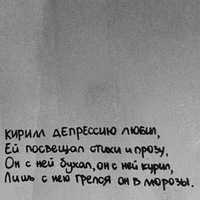 Кирим депрессию любил,
Ей посвещал стихи и прозу,
Он с ней бухал, он с ней курил,
Лишь с нею грелся он в морозы.